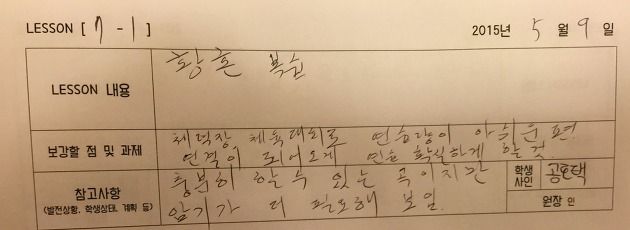 LESSON [ 7 - 1 ] 2015년 5 월 9 일
LESSON 내용 황혼 복습
체력장 체육대회로 연습량이 아쉬운 편.
보강할 점 및 과제 연결이 되어오게 연습 확실하게 할 것
참고사항 충분히 할 수 있는 곡이지만 학생 사인
(발전상황, 학생상태, 계획 등) 암기가 더 필요해 보임. 원장 인